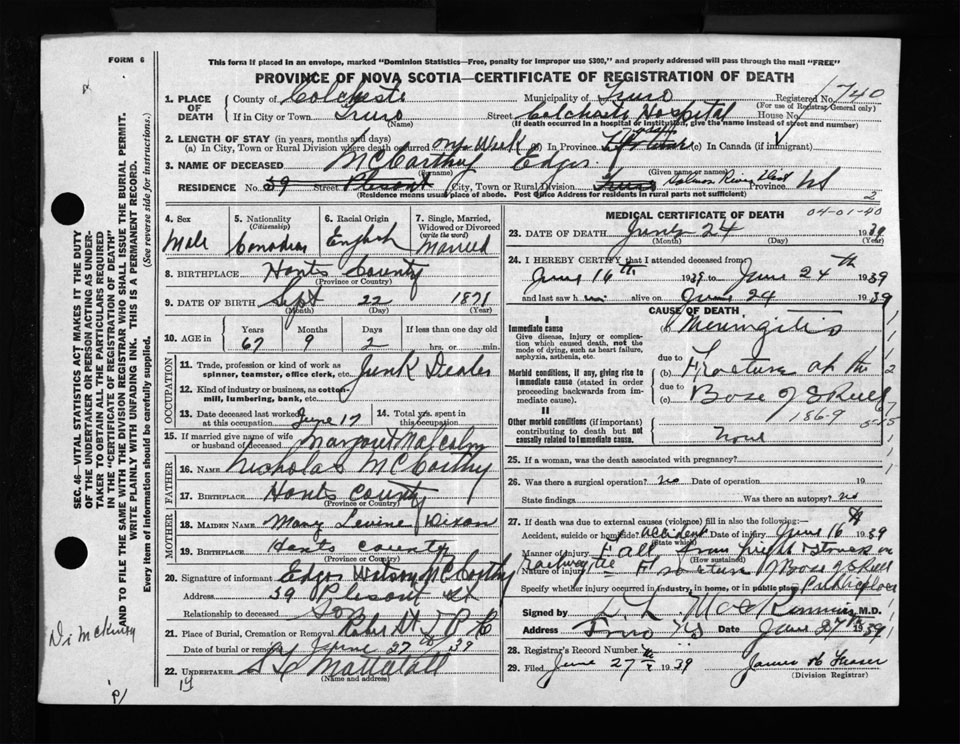 FORM 6
This form if placed in an envelope, marked "Dominion Statistics—Free, penalty for improper use $300," and properly addressed will pass through the mail "FREE"
PROVINCE OF NOVA SCOTIA—CERTIFICATE OF REGISTRATION OF DEATH
1. PLACE OF DEATH County of Colchester Municipality of Truro Registered No. 1740
(For use of Registrar General only)
If in City or Town Truro Street Colchester Hospital House No.
(Name) (If death occurred in a hospital or institution, give the name instead of street and number)
2. LENGTH OF STAY (in years, months and days)
(a) In City, Town or Rural Division where death occurred one Week (b) In Province (c) In Canada (if immigrant)
3. NAME OF DECEASED McCarthy Edgar
(Surname) (Given name or names)
RESIDENCE No. 39 Street Plesant City, Town or Rural Division Truro Salmon River Province NS
(Residence means usual place of abode. Post Office Address for residents in rural parts not sufficient)
2
4. Sex 5. Nationality 6. Racial Origin 7. Single, Married, Widowed or Divorced
(Citizenship) (write the word)
Male Canadian English Married
8. BIRTHPLACE Hants County
(Province or Country)
9. DATE OF BIRTH Sept 22 1871
(Month) (Day) (Year)
10. AGE in Years Months Days If less than one day old
67 9 2 hrs. or min.
OCCUPATION
11. Trade, profession or kind of work as spinner, teamster, office clerk, etc. Junk Dealer
12. Kind of industry or business, as cotton-mill, lumbering, bank, etc.
13. Date deceased last worked at this occupation June 17 14. Total yrs. spent in this occupation
15. If married give name of wife or husband of deceased Margaret Malcolm
FATHER
16. NAME Nicholas McCarthy
17. BIRTHPLACE Hants County
(Province or Country)
MOTHER
18. MAIDEN NAME Mary Levine Dixon
19. BIRTHPLACE Hants County
(Province or Country)
20. Signature of informant Edgar Watson McCarthy
Address 39 Plesant St
Relationship to deceased Son
21. Place of Burial, Cremation or Removal Robie St
Date of burial or removal June 27 1939
22. UNDERTAKER Mattatall
(Name and address)
19
MEDICAL CERTIFICATE OF DEATH
04-01-40
23. DATE OF DEATH June 24 1939
(Month) (Day) (Year)
24. I HEREBY CERTIFY that I attended deceased from
June 16th 1939 to June 24th 1939
and last saw him alive on June 24 1939
CAUSE OF DEATH
I
Immediate cause
Give disease, injury or complication which caused death, not the mode of dying, such as heart failure, asphyxia, asthenia, etc.
(a) Meningitis
due to
Morbid conditions, if any, giving rise to immediate cause (stated in order proceeding backwards from immediate cause).
(b) Fracture at the
due to
(c) Base of Skull
186-9
II
Other morbid conditions (if important) contributing to death but not causally related to immediate cause.
None
25. If a woman, was the death associated with pregnancy?
26. Was there a surgical operation? no Date of operation 19
State findings Was there an autopsy? no
27. If death was due to external causes (violence) fill in also the following:—
Accident, suicide or homicide? Accident Date of injury June 16th 1939
(State which)
Manner of injury Fall from height struck on
(How sustained)
Nature of injury Fracture of Base of Skull
Specify whether injury occurred in industry, in home, or in public place Public place
Signed by M.D.
Address Truro NS Date June 27th 1939
28. Registrar's Record Number
29. Filed June 27th 1939 James H Fraser
(Division Registrar)
SEC. 46—VITAL STATISTICS ACT MAKES IT THE DUTY OF THE UNDERTAKER OR PERSON ACTING AS UNDERTAKER TO OBTAIN ALL THE PARTICULARS REQUIRED IN THE "CERTIFICATE OF REGISTRATION OF DEATH" AND TO FILE THE SAME WITH THE DIVISION REGISTRAR WHO SHALL ISSUE THE BURIAL PERMIT.
WRITE PLAINLY WITH UNFADING INK. THIS IS A PERMANENT RECORD.
Every item of information should be carefully supplied. (See reverse side for instructions.)